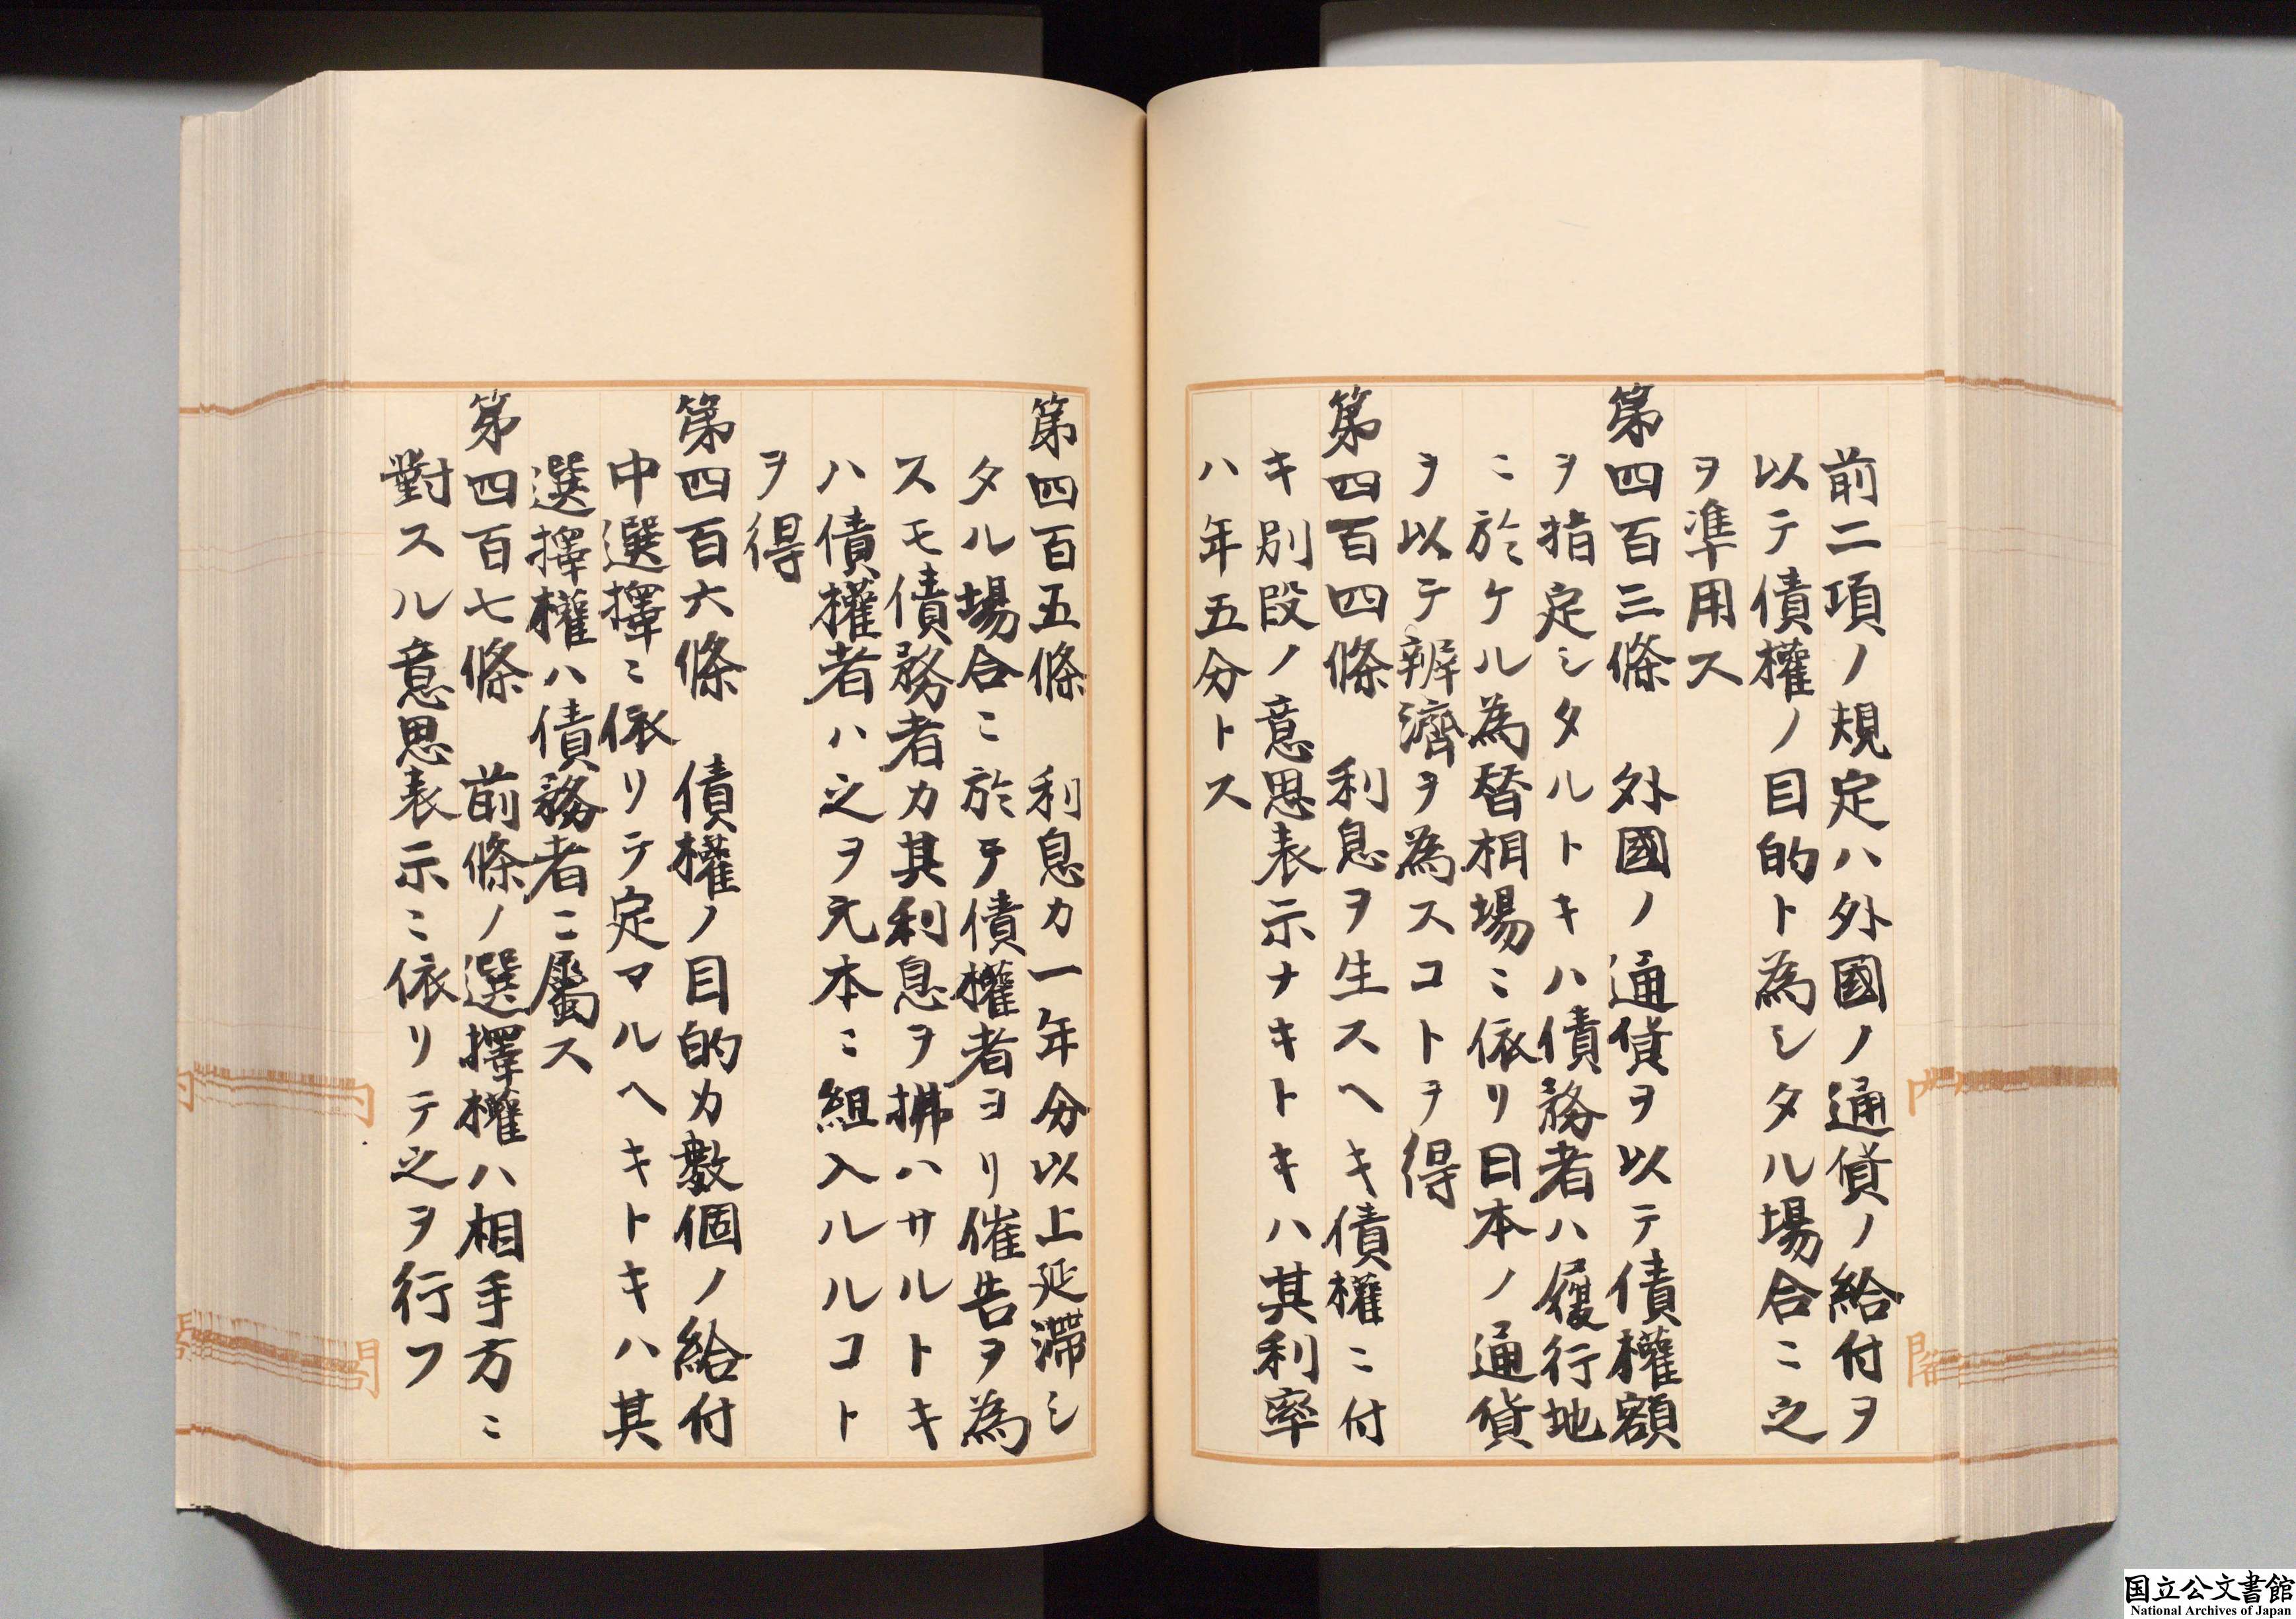 前二項ノ規定ハ外國ノ通貨ノ給付ヲ
以テ債權ノ目的ト為シタル場合ニ之
ヲ準用ス
第四百三條　外國ノ通貨ヲ以テ債權額
ヲ指定シタルトキハ債務者ハ履行地
ニ於ケル為替相場ニ依リ日本ノ通貨
ヲ以テ辨濟ヲ為スコトヲ得
第四百四條　利息ヲ生スヘキ債權ニ付
キ別段ノ意思表示ナキトキハ其利率
ハ年五分トス
第四百五條　利息カ一年分以上延滯シ
タル場合ニ於テ債權者ヨリ催告ヲ為
スモ債務者カ其利息ヲ拂ハサルトキ
ハ債權者ハ之ヲ元本ニ組入ルルコト
ヲ得
第四百六條　債權ノ目的カ數個ノ給付
中選擇ニ依リテ定マルヘキトキハ其
選擇權ハ債務者ニ屬ス
第四百七條　前條ノ選擇權ハ相手方ニ
對スル意思表示ニ依リテ之ヲ行フ
内
閣
国立公文書館
National Archives of Japan